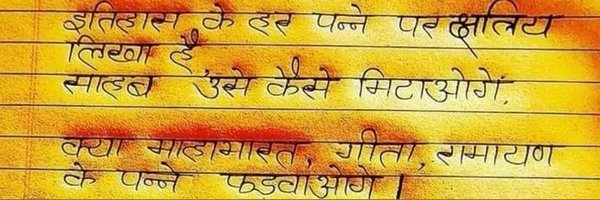 इतिहास के हर पन्ने पर क्षत्रिय
लिखा है,
साहब उसे कैसे मिटाओगें,
क्या माहाभारत, गीता, रामायण
के पन्ने फडवाओगे ।